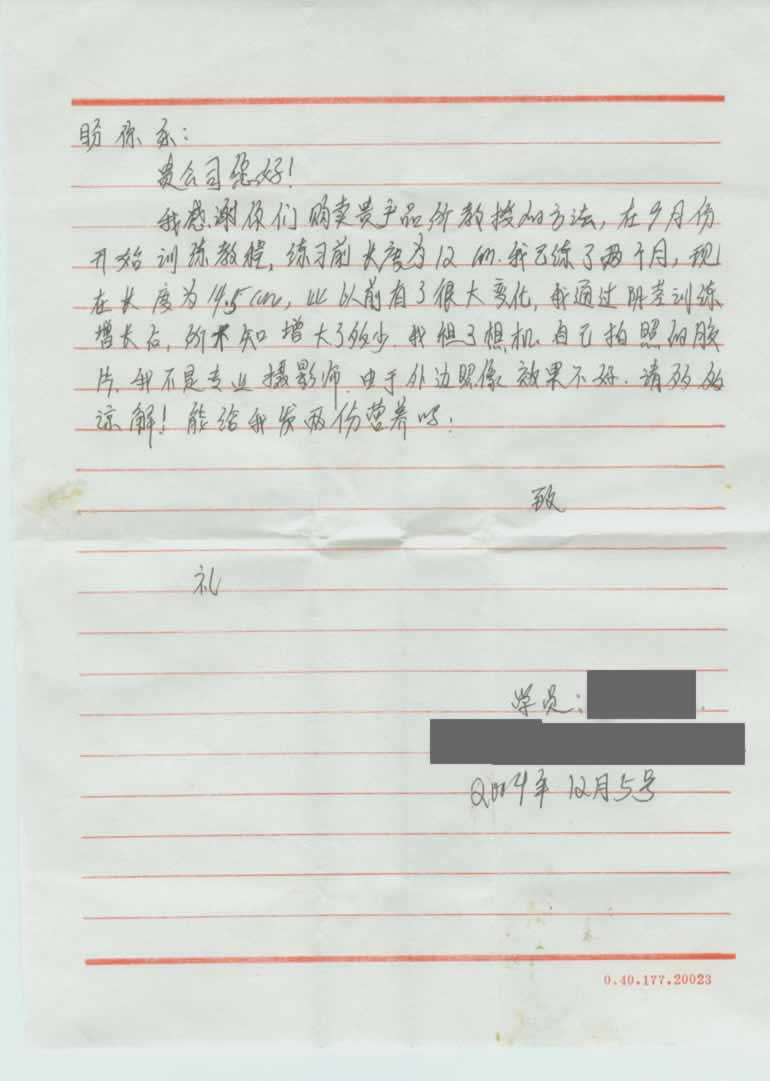 盼你系：
贵公司您好！
我感谢你们购卖贵产品所教授的方法，在9月份
开始训练教程，练习前长度为12cm.我已练了两个月，现
在长度为14.5cm，比以前有了很大变化，我通过阴茎训练
增长后，所不知增大了多少.我想了想机自己拍照的胶
片.我不是专业摄影师.由于外边照像效果不好.请多多
谅解！能给我发两份营养吗：
致
礼
学员：
2004年12月5号
0.40.177.20023